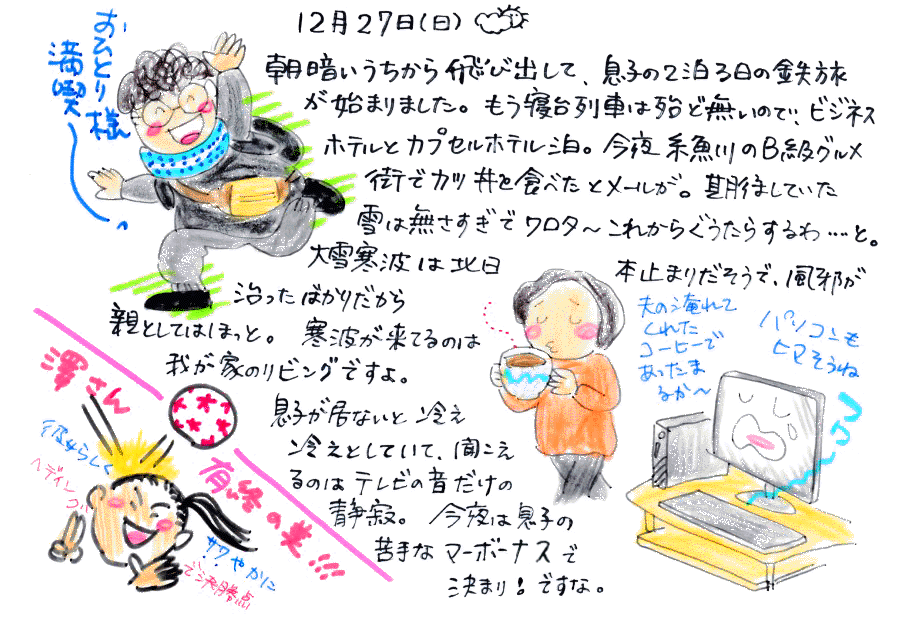 12月27日(日)
おひとり様
満喫
朝暗いうちから飛び出して、息子の2泊3日の鉄旅
が始まりました。もう寝台列車は殆ど無いので、ビジネス
ホテルとカプセルホテル泊。今夜糸魚川のB級グルメ
街でカツ丼を食べたとメールが。期待していた
雪は無さすぎでワロタ～これからぐうたらするわ……と。
大雪寒波は北日
本止まりだそうで、風邪が
治ったばかりだから
親としてはほっと。寒波が来てるのは
我が家のリビングですよ。
息子が居ないと冷え
冷えとしていて、聞こえ
るのはテレビの音だけの
静寂。今夜は息子の
苦手なマーボーナスで
決まり!ですな。
夫の淹れて
くれた
コーヒーで
あったま
るか～
パソコンも
ヒマそうね
澤さん
有終の美!!!
彼女らしく
ヘディング
サワやかに
で決勝点